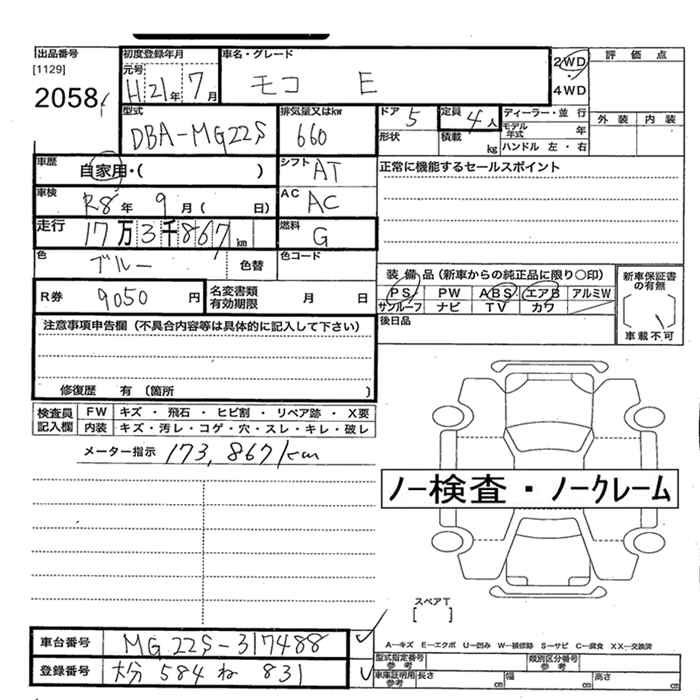 出品番号 初度登録年月 車名・グレード 2WD・4WD 評価点
[1129] 元号 H21年 7月 モコ E
2058 外装 内装
型式 排気量又はkw ドア 5 定員 4人 ディーラー・並行
DBA-MG22S 660 形状 積載 kg モデル年式 年
ハンドル 左・右
車歴 自家用・( ) シフト AT 正常に機能するセールスポイント
車検 R8年 9月( 日) AC AC
走行 17万3千867km 燃料 G
色 ブルー 色替 色コード 装備品(新車からの純正品に限り○印) 新車保証書の有無
R券 9050円 名変書類有効期限 月 日 PS PW ABS エアB アルミW
サンルーフ ナビ TV カワ
注意事項申告欄(不具合内容等は具体的に記入して下さい) 後日品 車載不可
修復歴 有(箇所 )
検査員記入欄 FW キズ・飛石・ヒビ割・リペア跡・X要
内装 キズ・汚レ・コゲ・穴・スレ・キレ・破レ
メーター指示 173,867km
ノー検査・ノークレーム
スペアT
[ ]
車台番号 MG22S-317488
A-キズ E-エクボ U-凹み W-補修跡 S-サビ C-腐食 XX-交換済
登録番号 大分 584 ね 831
型式指定番号参考 類別区分番号参考
車庫証明用参考 長さ cm 幅 cm 高さ cm